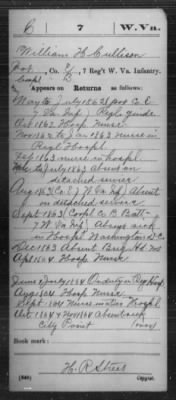 C 7 W.Va.
William H. Cullison
Pvt., Co. E, 7 Reg't W. Va. Infantry.
Corpl B
Appears on Returns as follows:
May to July 1862 Co. E
7 Va Inf Regl. guide.
Oct 1862 Hosp. Nurse.
Nov 1862 to Jan 1863 nurse in
Regl Hospl.
Feb 1863 nurse in hospl.
to July 1863 absent on
detached service
Aug 1863 (Co. E 7 W Va Inf) Absent
on detached service
Sept 1863 (Corpl Co B Batt
7 W Va Inf) Absent sick
in Hospl Washington D.C.
Dec 1863 Absent Brig. Hd Qrs
Apl 1864 Hosp. Nurse
June & July 1864 On duty in Hosp
Aug 1864 Hosp. Nurse
Sept 1864 Nurse in Hospl
Oct 1864 & Nov 1864 absent sick
City Point
Book mark:
(546) Copyist.